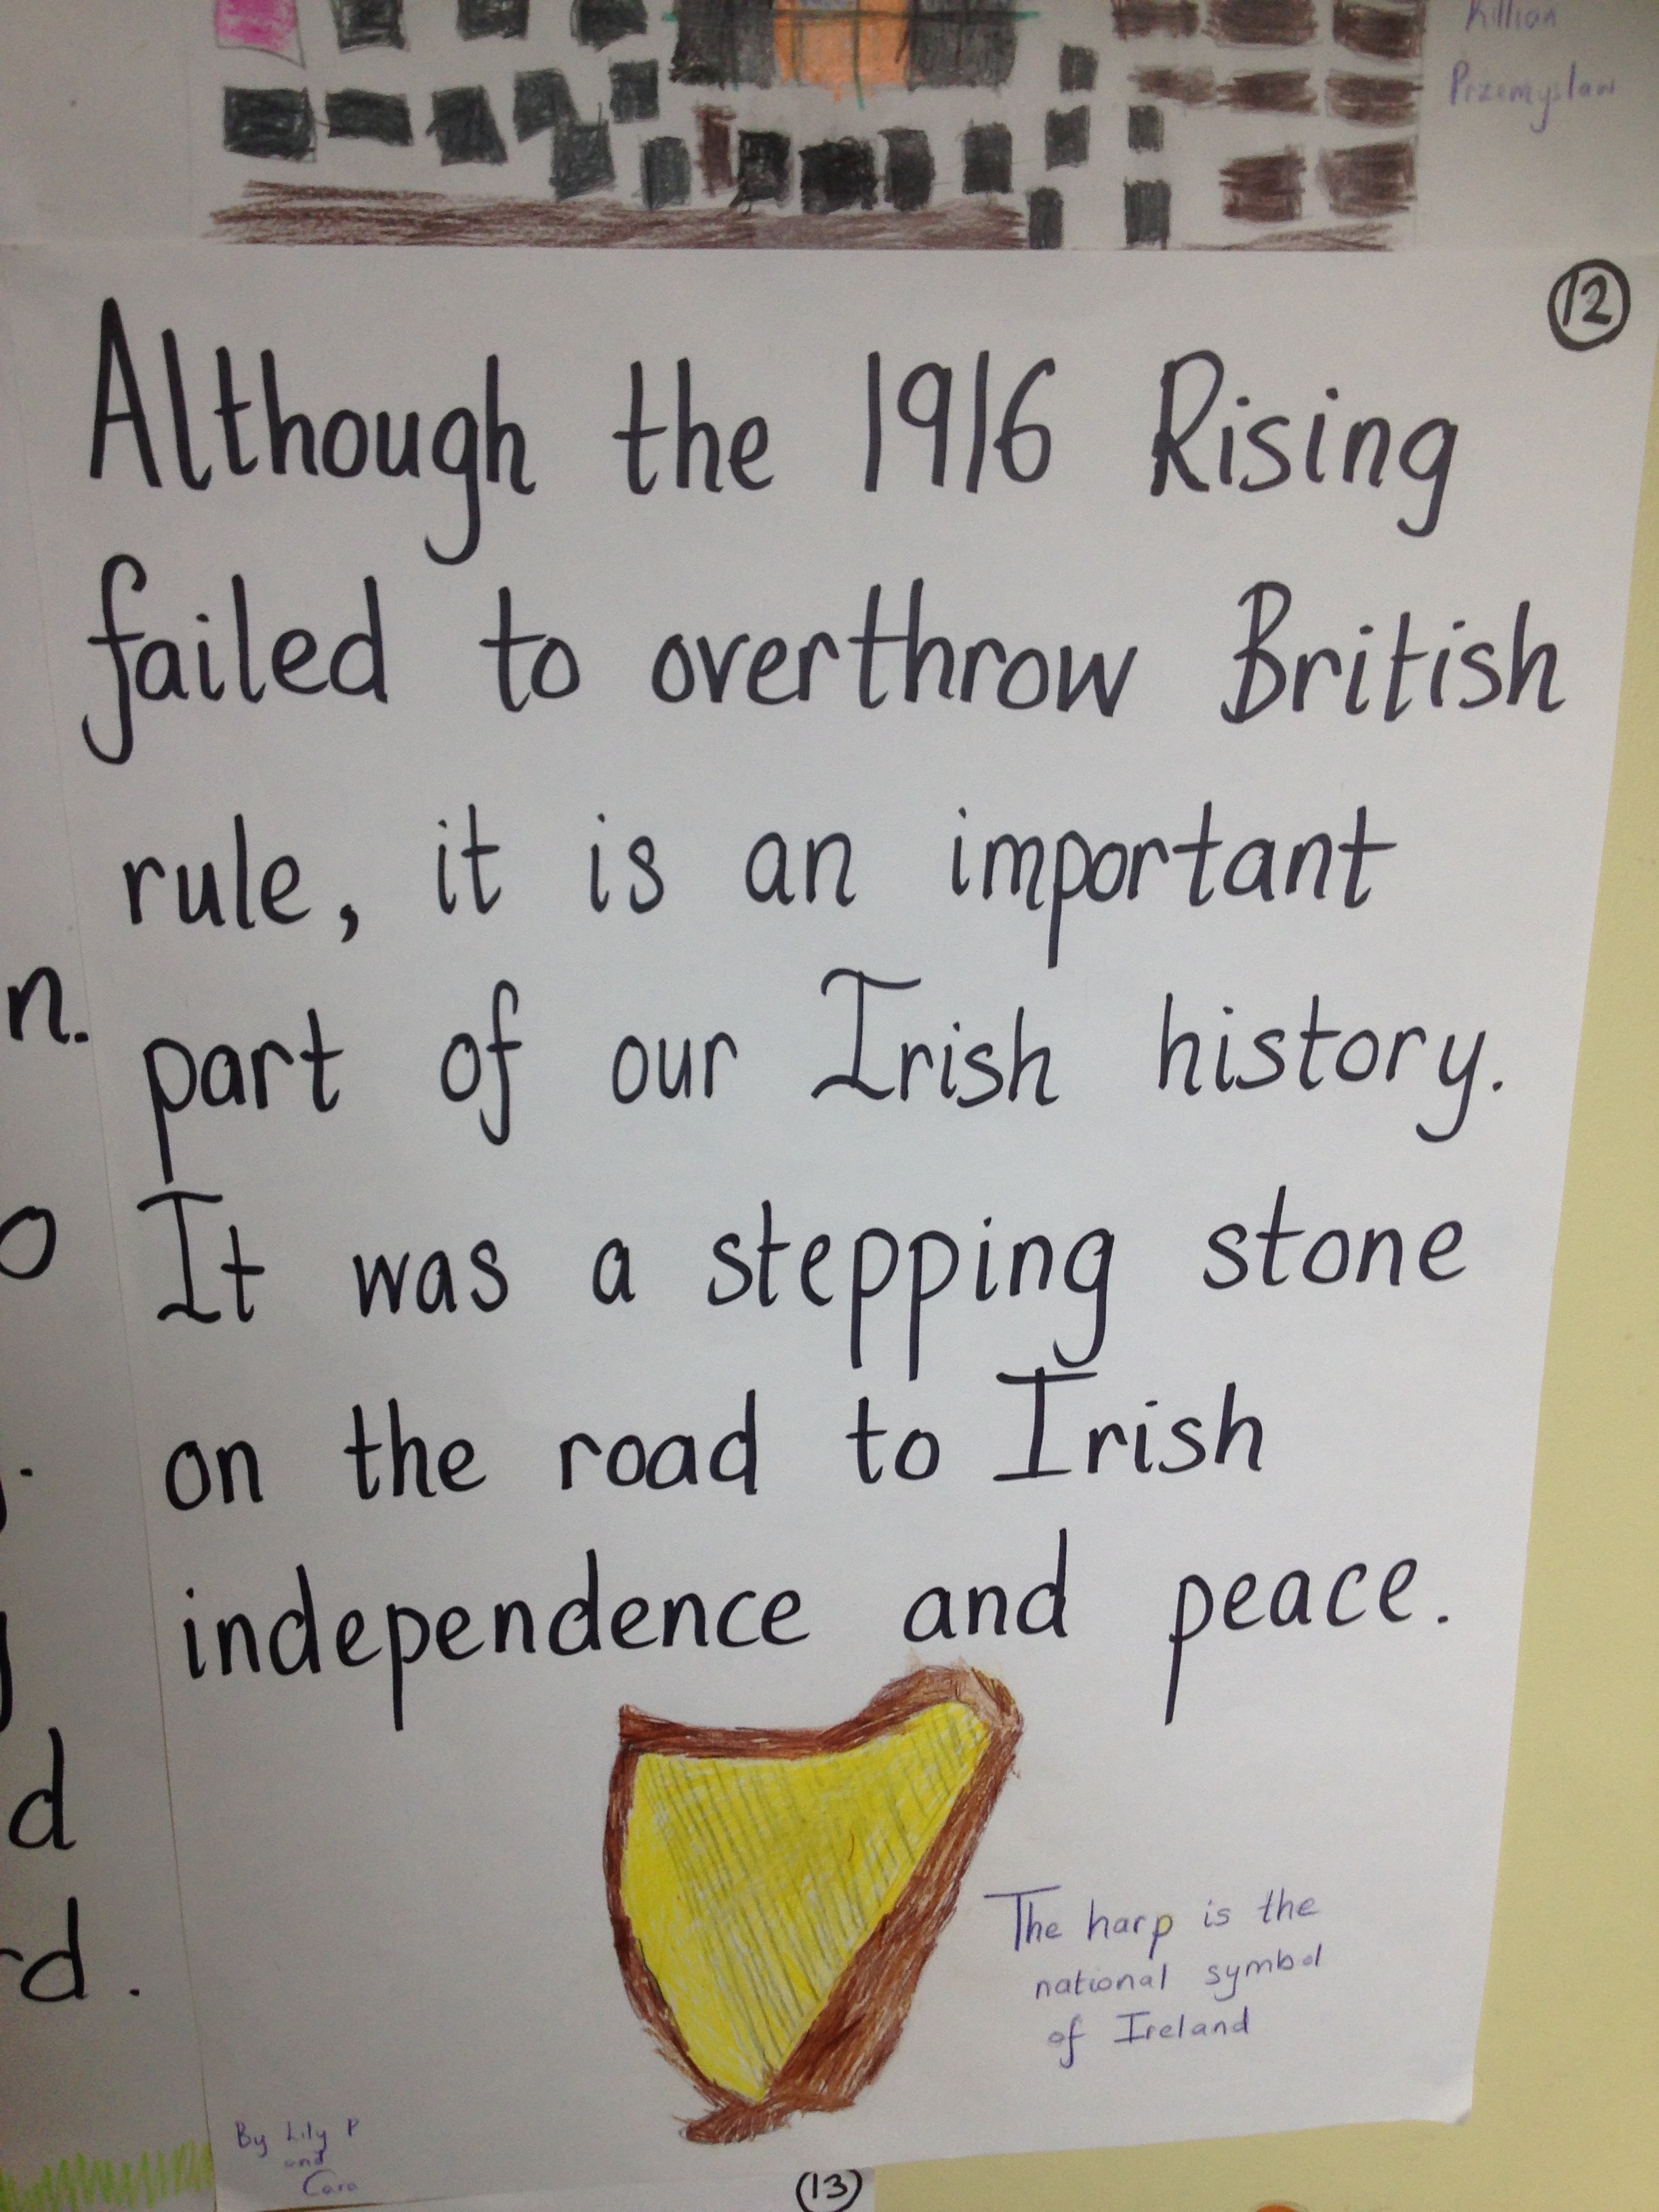 Killian
Przemyslaw
12
Although the 1916 Rising
failed to overthrow British
rule, it is an important
part of our Irish history.
It was a stepping stone
on the road to Irish
independence and peace.
The harp is the
national symbol
of Ireland
By Lily P
and
Cara
(13)
n.
o
d
rd.